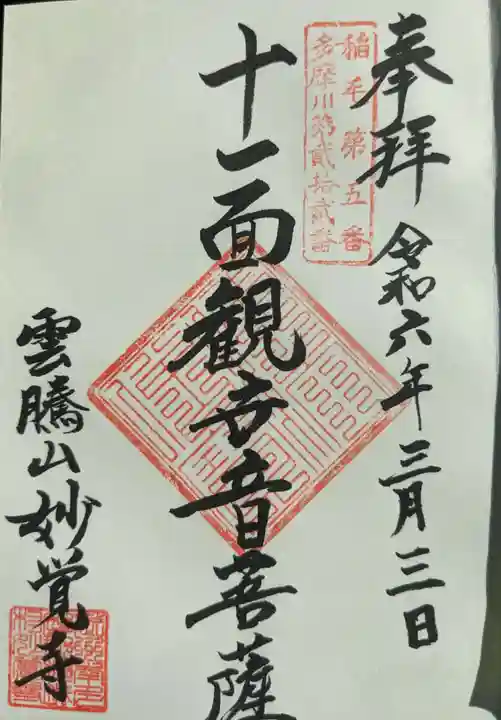 奉拝
令和六年三月三日
稲毛第五番
多摩川第貳拾貳番
十一面観世音菩薩
雲騰山妙覚寺